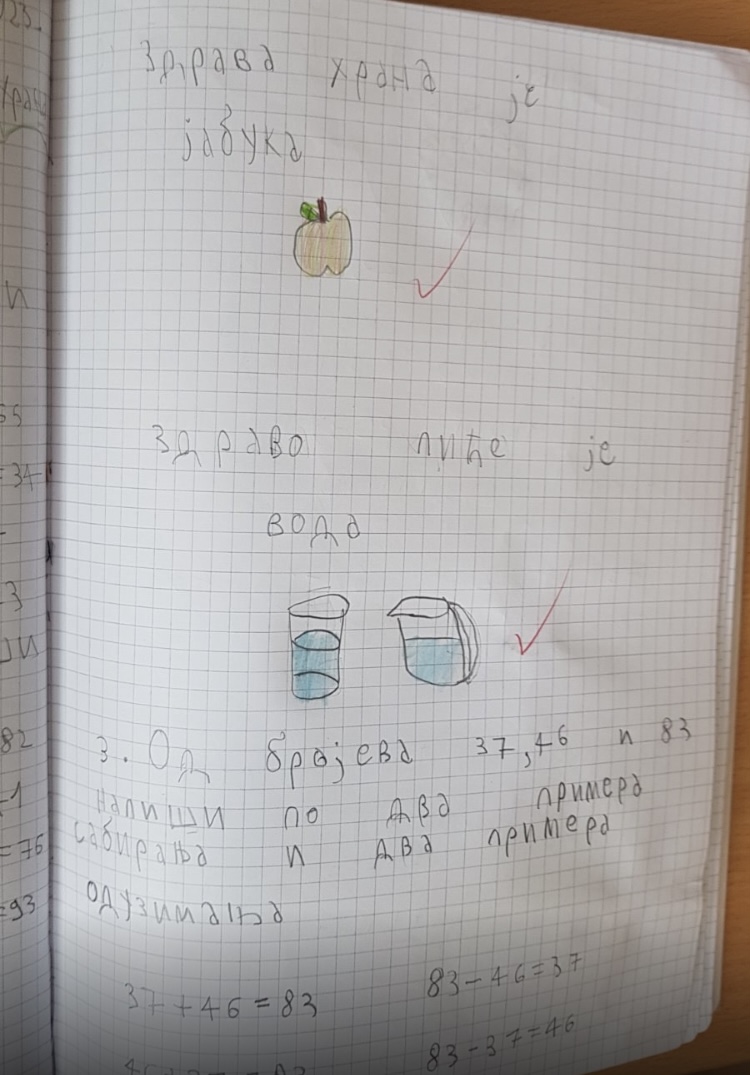 23.
Здрава храна је
јабука
Здраво пиће је
вода
3. Од бројева 37, 46 и 83
напиши по два примера
сабирања и два примера
одузимања
37 + 46 = 83
83 - 46 = 37
83 - 37 = 46
55
= 34
3
82
-1
= 76
= 93